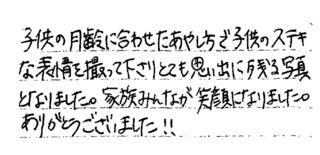 子供の月齢に合わせたあやし方で子供のステキ
な表情を撮って下さりとても思い出に残る写真
となりました。家族みんなが笑顔になりました。
ありがとうございました!!